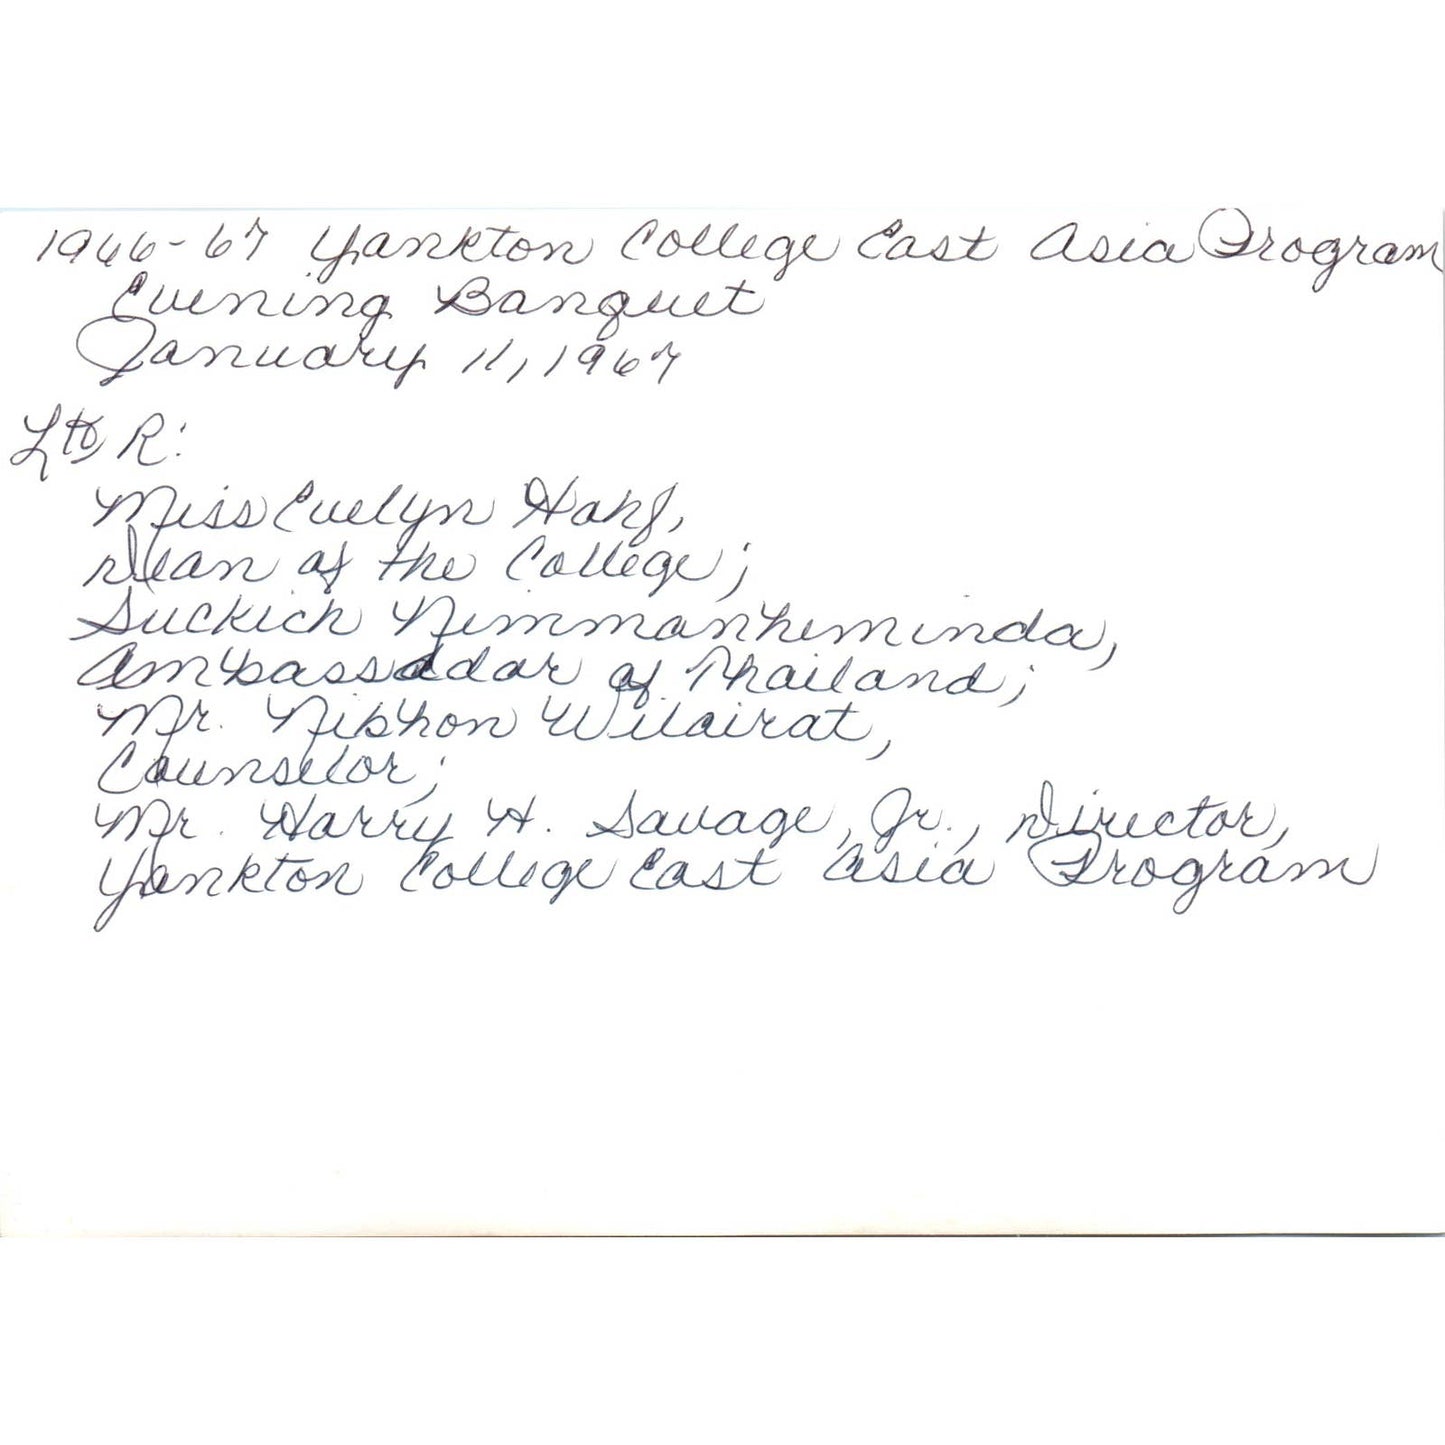 1966-67 Yankton College East Asia Program
Evening Banquet
January 11, 1967
L to R:
Miss Evelyn Hohf,
Dean of the College;
Suckich Nimmanheminda,
Ambassador of Thailand;
Mr. Nibhon Wilairat,
Counselor;
Mr. Harry H. Savage, Jr., Director,
Yankton College East Asia Program